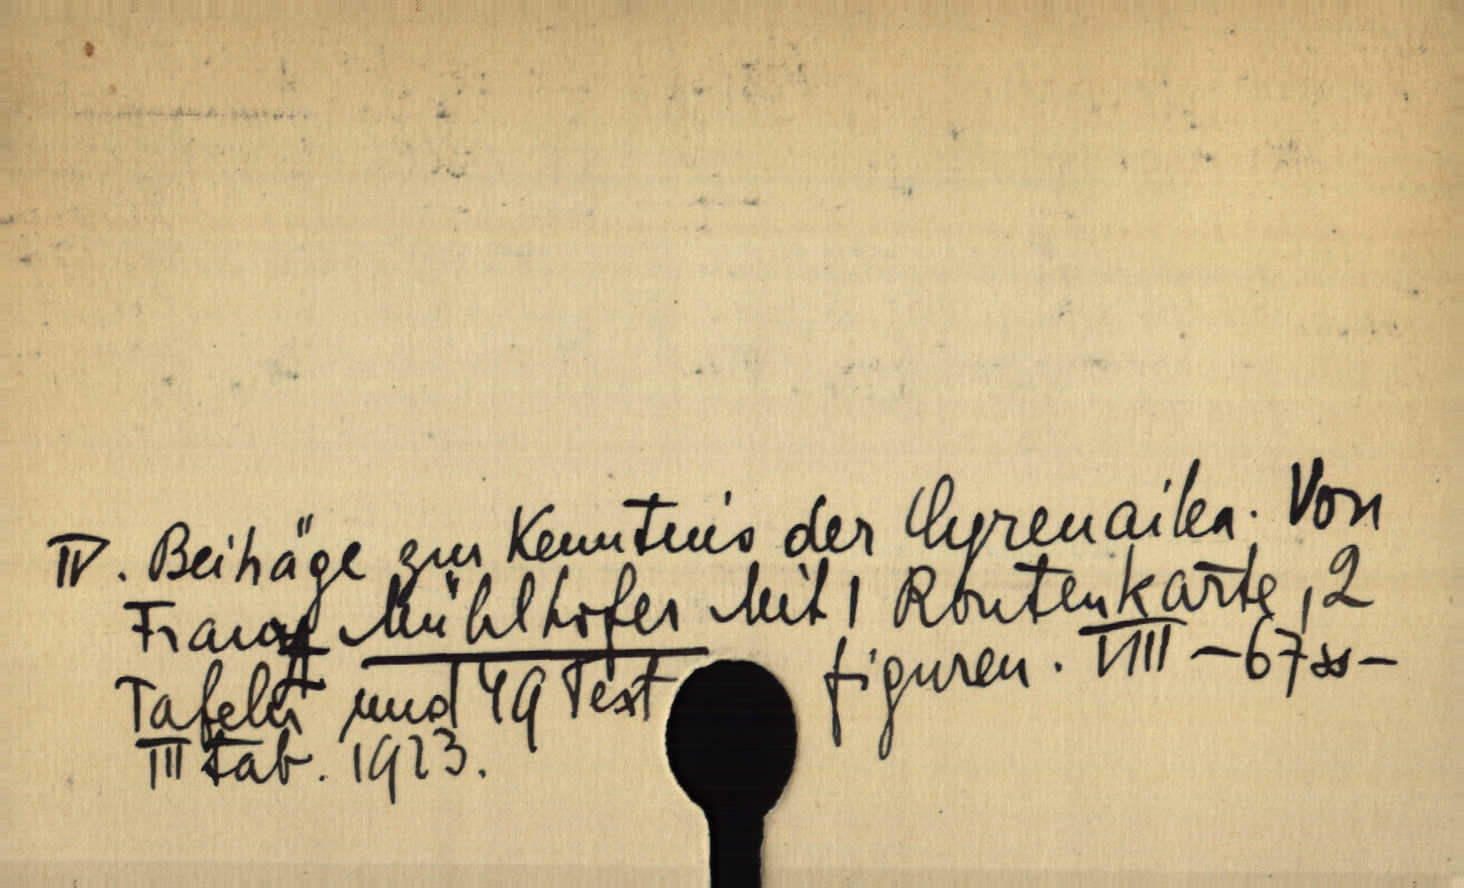 IV. Beiträge zur Kenntnis der Cyrenaika. Von
Franz Mühlhofer Mit 1 Routenkarte, 2
Tafeln und 49 Text figuren. VIII - 67 ss -
III tab. 1923.